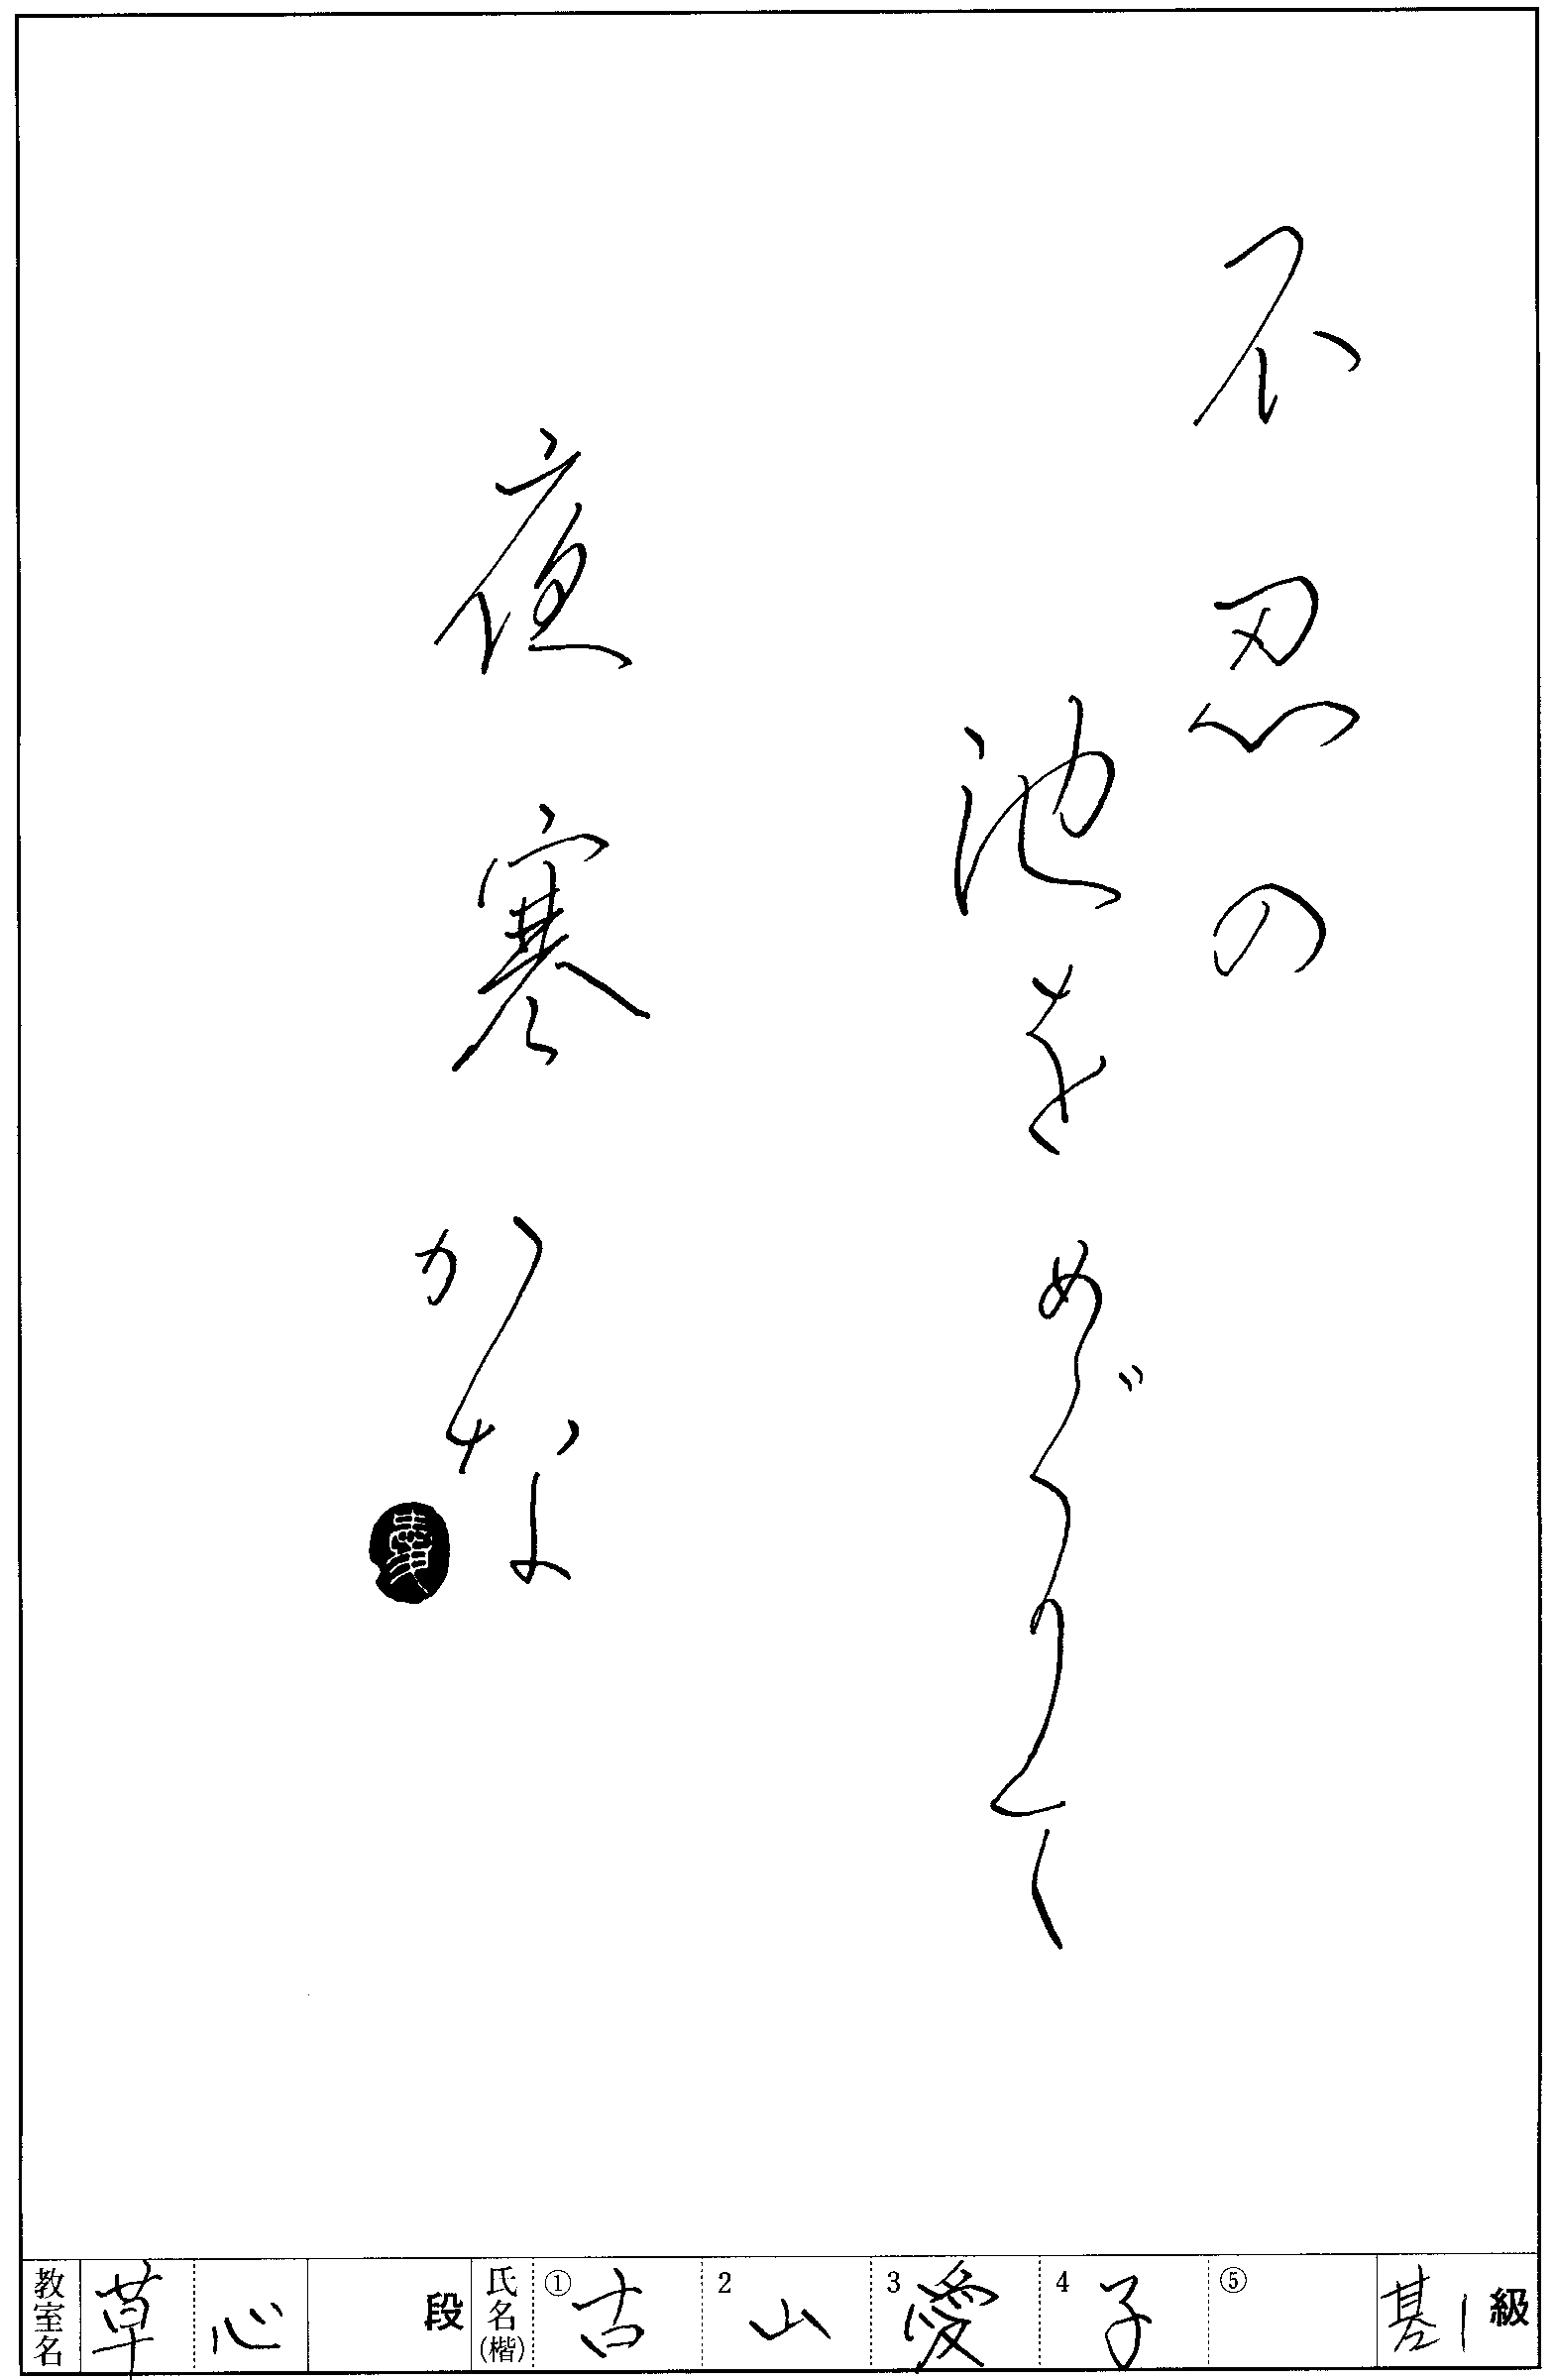 不忍の
池をめぐりて
夜寒かな
愛
教室名 草心 段 氏名(楷) ① 古 2 山 3 愛 4 子 ⑤ 基1級